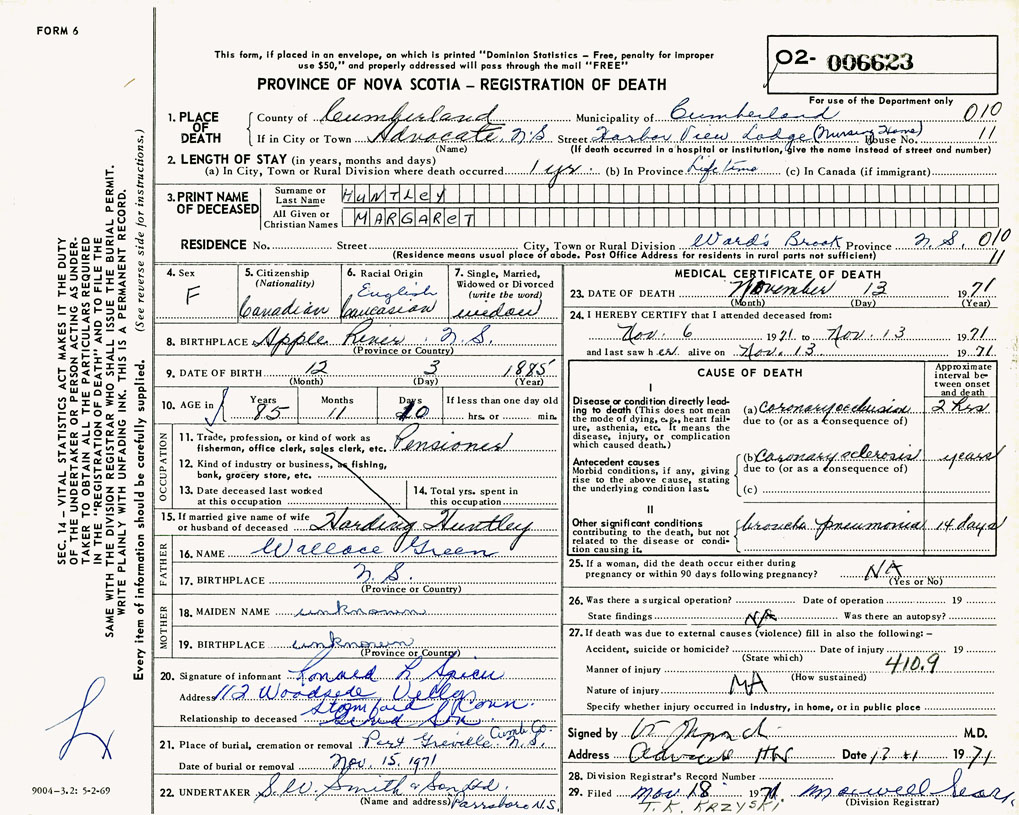 FORM 6
This form, if placed in an envelope, on which is printed "Dominion Statistics – Free, penalty for improper
use $50," and properly addressed will pass through the mail "FREE"
PROVINCE OF NOVA SCOTIA – REGISTRATION OF DEATH
O2- 006623
For use of the Department only
1. PLACE OF DEATH
County of Cumberland Municipality of Cumberland 010
If in City or Town Advocate, N.S Street Harbor View Lodge (Nursing Home) House No. 11
(Name) (If death occurred in a hospital or institution, give the name instead of street and number)
2. LENGTH OF STAY (in years, months and days)
(a) In City, Town or Rural Division where death occurred 1 yr. (b) In Province Life time (c) In Canada (if immigrant)
3. PRINT NAME OF DECEASED
Surname or Last Name HUNTLEY
All Given or Christian Names MARGARET
RESIDENCE No. Street City, Town or Rural Division Ward's Brook Province N.S. 010
(Residence means usual place of abode. Post Office Address for residents in rural parts not sufficient) 11
4. Sex F
5. Citizenship (Nationality) Canadian
6. Racial Origin English Caucasian
7. Single, Married, Widowed or Divorced (write the word) widow
8. BIRTHPLACE Apple River, N.S.
(Province or Country)
9. DATE OF BIRTH 12 3 1885
(Month) (Day) (Year)
10. AGE in Years 85 Months 11 Days 10 If less than one day old
hrs. or min.
OCCUPATION
11. Trade, profession, or kind of work as
fisherman, office clerk, sales clerk, etc. Pensioner
12. Kind of industry or business, as fishing,
bank, grocery store, etc.
13. Date deceased last worked
at this occupation
14. Total yrs. spent in
this occupation
15. If married give name of wife
or husband of deceased Harding Huntley
FATHER
16. NAME Wallace Green
17. BIRTHPLACE N.S.
(Province or Country)
MOTHER
18. MAIDEN NAME unknown
19. BIRTHPLACE unknown
(Province or Country)
20. Signature of informant Ronald L Spicer
Address 112 Woodside
Conn.
Relationship to deceased Grand Son
21. Place of burial, cremation or removal Port Greville Cumb Co. N.S.
Date of burial or removal Nov. 15, 1971
22. UNDERTAKER S.W. Smith & Son Ltd.
(Name and address) Parrsboro N.S.
MEDICAL CERTIFICATE OF DEATH
23. DATE OF DEATH November 13 1971
(Month) (Day) (Year)
24. I HEREBY CERTIFY that I attended deceased from:
Nov. 6 1971 to Nov. 13 1971
and last saw her alive on Nov. 13 1971
CAUSE OF DEATH
Approximate interval between onset and death
I
Disease or condition directly leading to death (This does not mean the mode of dying, e.g., heart failure, asthenia, etc. It means the disease, injury, or complication which caused death.)
(a) Coronary occlusion 2 hrs
due to (or as a consequence of)
Antecedent causes
Morbid conditions, if any, giving rise to the above cause, stating the underlying condition last.
(b) Coronary sclerosis years
due to (or as a consequence of)
(c)
II
Other significant conditions
contributing to the death, but not related to the disease or condition causing it.
broncho pneumonia 14 days
25. If a woman, did the death occur either during
pregnancy or within 90 days following pregnancy? NA
(Yes or No)
26. Was there a surgical operation? Date of operation 19
State findings N/A Was there an autopsy?
27. If death was due to external causes (violence) fill in also the following: –
Accident, suicide or homicide? Date of injury 19
(State which)
Manner of injury 410.9
(How sustained)
Nature of injury NA
Specify whether injury occurred in industry, in home, or in public place
Signed by M.D.
Address Date 13 11 1971
28. Division Registrar's Record Number
29. Filed Nov 18 1971 Maxwell
T. K. KRZYSKI (Division Registrar)
SEC. 14 – VITAL STATISTICS ACT MAKES IT THE DUTY
OF THE UNDERTAKER OR PERSON ACTING AS UNDER-
TAKER TO OBTAIN ALL THE PARTICULARS REQUIRED
IN THE "REGISTRATION OF DEATH" AND TO FILE THE
SAME WITH THE DIVISION REGISTRAR WHO SHALL ISSUE THE BURIAL PERMIT.
WRITE PLAINLY WITH UNFADING INK. THIS IS A PERMANENT RECORD.
Every item of information should be carefully supplied. (See reverse side for instructions.)
9004-3.2: 5-2-69